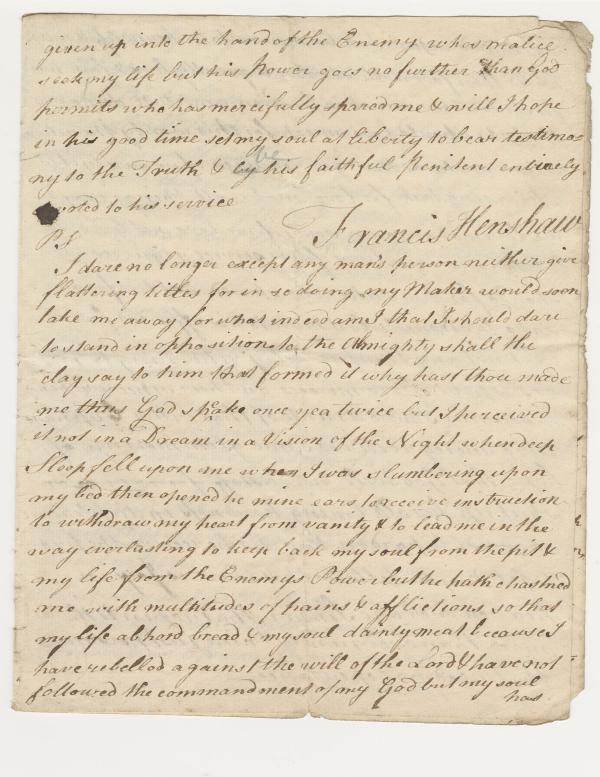 given up into the hand of the Enemy whos malice
seek my life but his Power goes no further than God
permits who has mercifully spared me & will I hope
in his good time set my soul at liberty to bear testimo=
ny to the Truth & by his faithful Penitent entirely
be
voted to his service
Francis Henshaw
P.S
I dare no longer except any man's person neither give
flattering titles for in so doing my Maker would soon
take me away for what indeed am I that I should dare
to stand in opposition to the Almighty shall the
clay say to him that formed it why hast thou made
me thus God spake once yea twice but I perceived
it not in a Dream in a Vision of the Night when deep
Sleep fell upon me when I was slumbering upon
my bed then opened he mine ears to receive instruction
to withdraw my heart from vanity & to lead me in the
way everlasting to keep back my soul from the pit &
my life from the Enemys Power but he hath chastned
me with multitudes of pains & afflictions so that
my life abhord bread & my soul dainty meat because I
have rebelled against the will of the Lord & have not
followed the commandment of my God but my soul
has